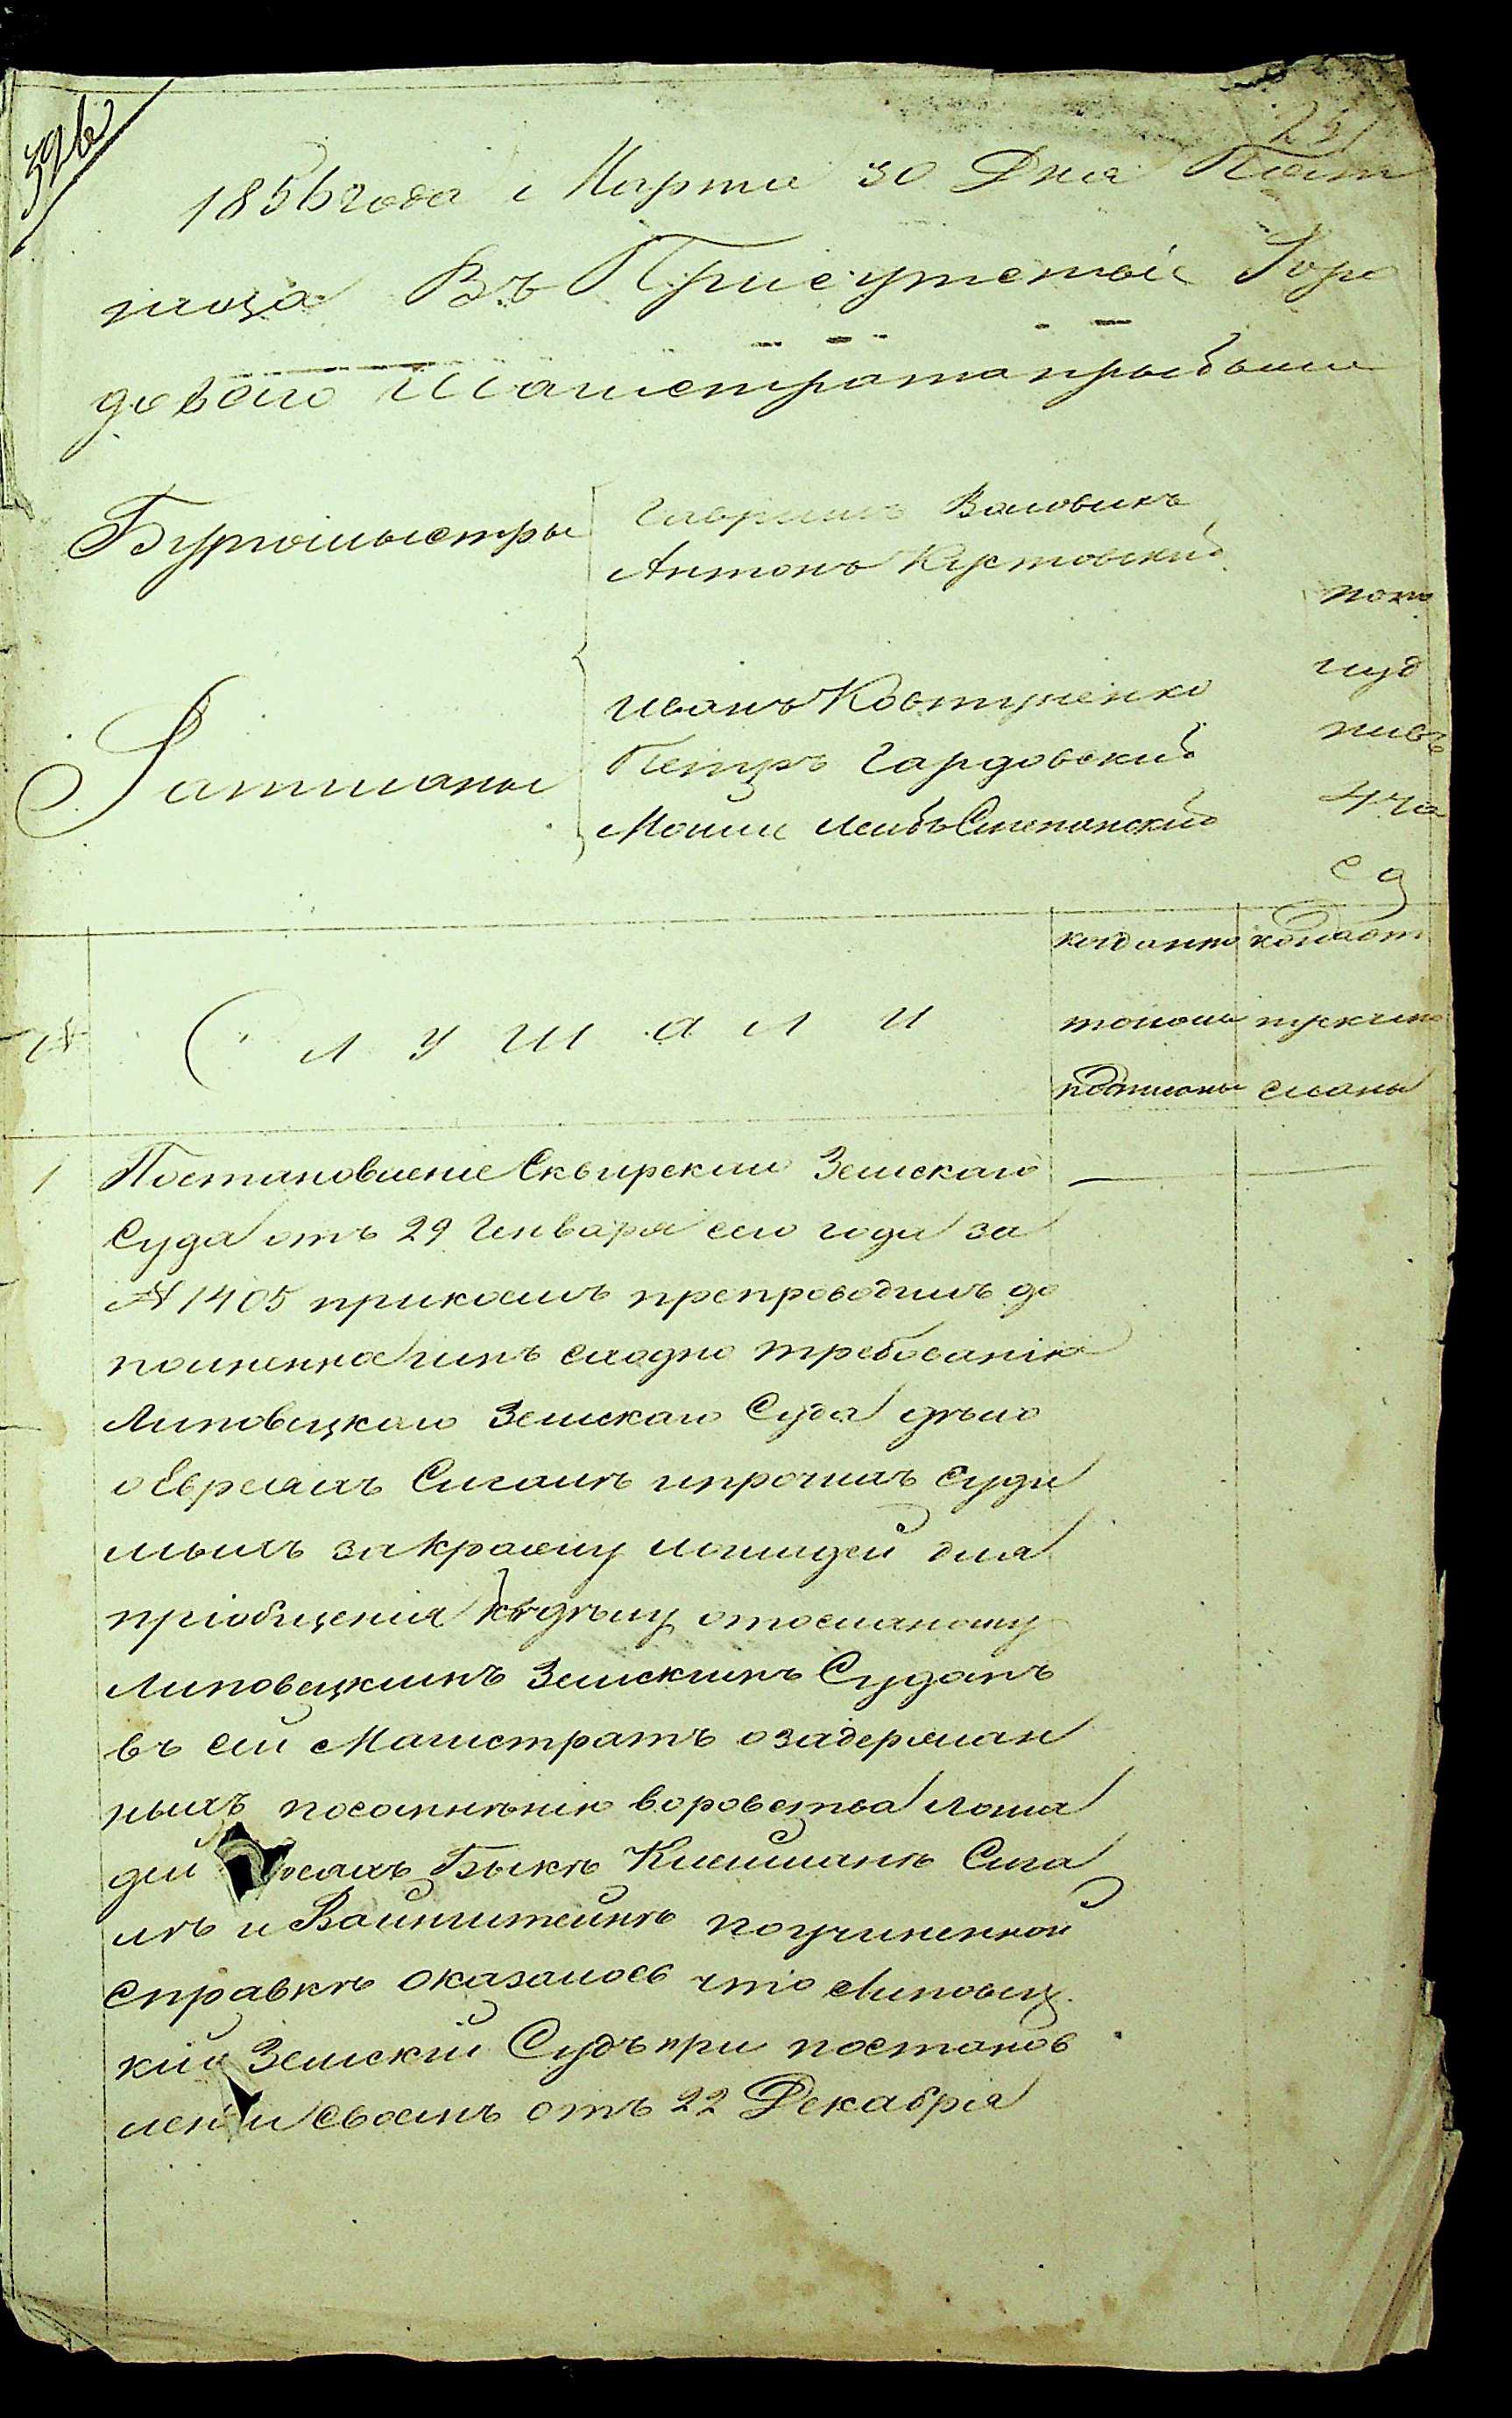 326
23
1856 года Марта 30 Дня Пят
ница Въ Присутствіе Горо
доваго Магистрата прыбыли
Бургомыстры
Гаврыилъ Воловикъ
Антонъ Кустовскій
Ратманы
Иванъ Ковтуненко
Петръ Гардовскій
Мошко Лейбъ Степанскій
попо
луд
нивъ
4 ча
са
№
Слушали
когда мто
токолы
подписаны
когда от
пуск
сланы
1 Постановленіе Сквирскаго Земскаго
Суда отъ 29 Генваря сего года за
№ 1405 прикоемъ препроводилъ до
полненное имъ сходно требованію
Липовецкаго Земскаго Суда дѣло
о Евреяхъ Сигалѣ и прочихъ суди
мыхъ за кражу лошадей для
пріобщенія къ дѣлу отосланому
Липовецкимъ Земскимъ Судомъ
въ сей Магистратъ о задержан
ныхъ посомнѣнію воровства лоша
дей Быкѣ Клейманѣ Сига
лѣ и Ваинштейнѣ поучиненной
справкѣ оказалось что Липовец
кій Земскій Судъ при постанов
леніи своемъ отъ 22 Декабря